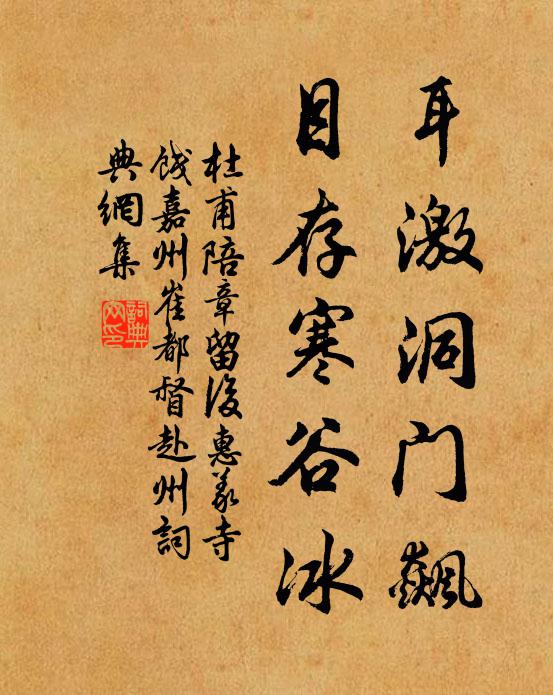 耳激洞门飙
目存寒谷冰
杜甫陪章留後惠义寺
饯嘉州崔都督赴州詞
典網集
詞典
网印